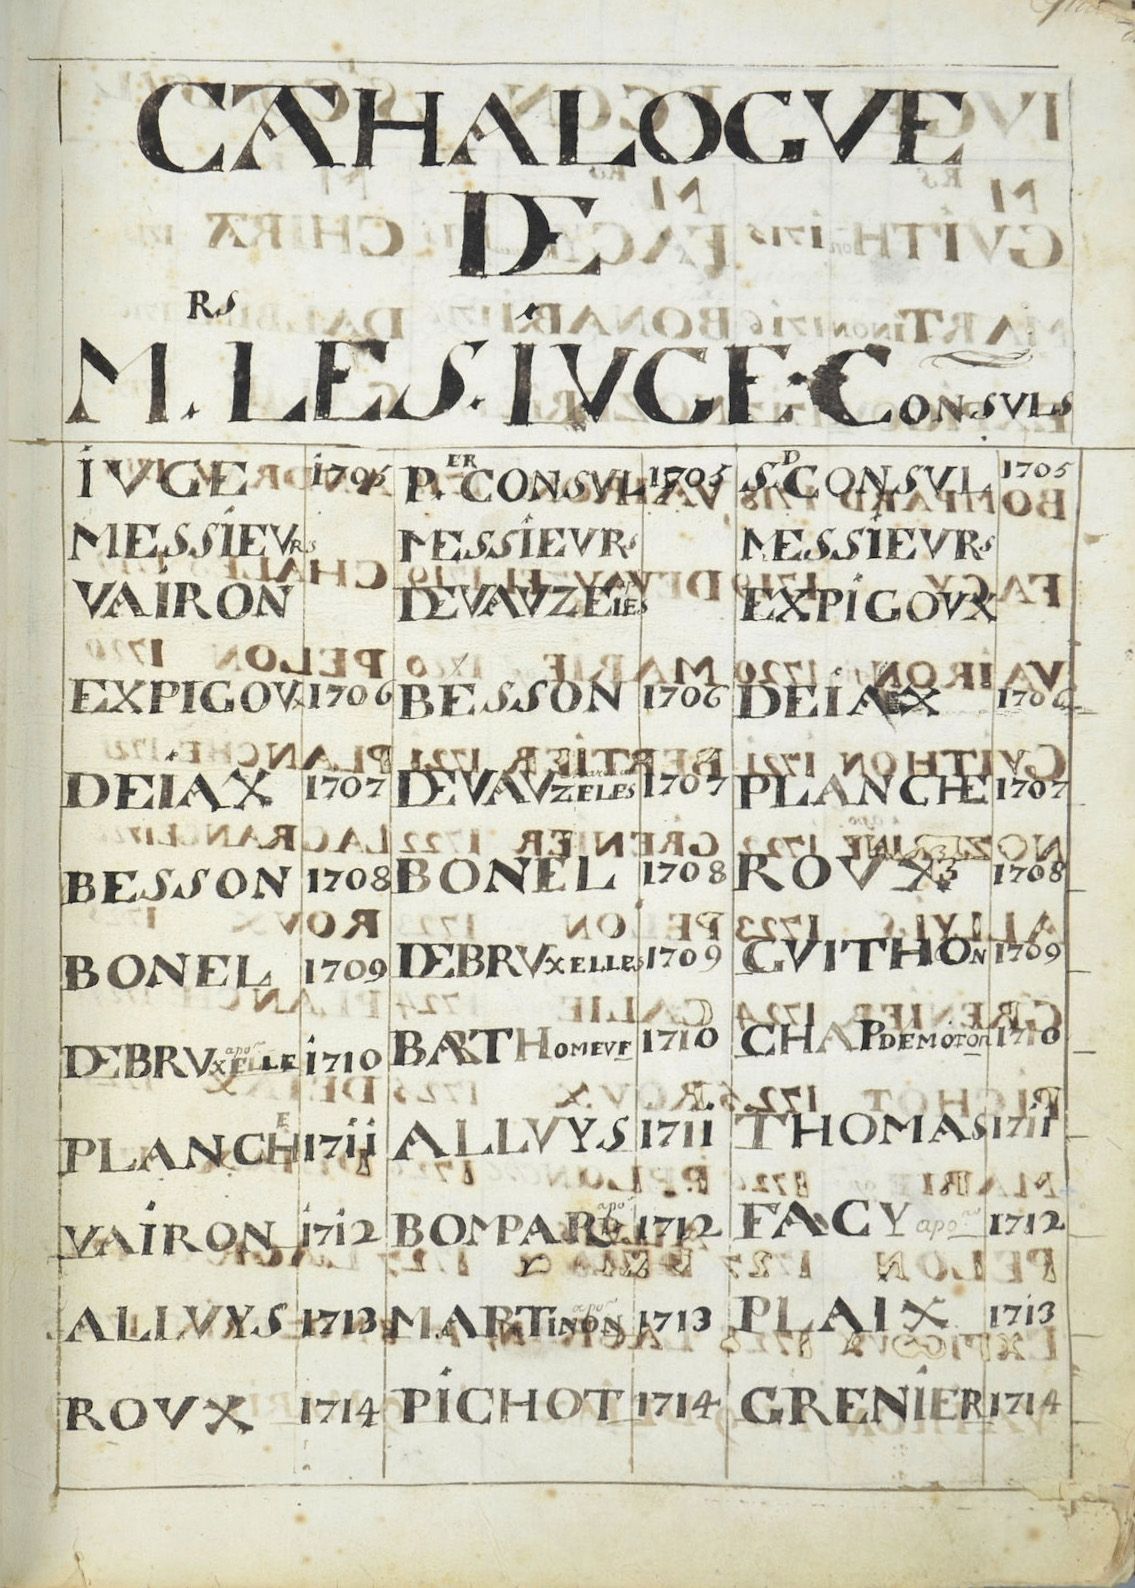 CATHALOGVE
DE
M.RS LES. IVGE. CONSULS
IVGE 1705 P.ER CONSVL 1705 S.D CONSVL 1705
MESSIEVRS MESSIEVRS MESSIEVRS
VAIRON DEVAVZELES EXPIGOVX
EXPIGOVX 1706 BESSON 1706 DEIAX 1706
DEIAX 1707 DEVAVZELES 1707 PLANCHE 1707
BESSON 1708 BONEL 1708 ROVX 1708
BONEL 1709 DEBRVXELLES 1709 GVITHON 1709
DEBRVXELLE apo.re 1710 BARTHOMEVF 1710 CHAPDEMOTON 1710
PLANCHE 1711 ALLVYS 1711 THOMAS 1711
VAIRON 1712 BOMPARD apo.re 1712 FACY apo.re 1712
ALLVYS 1713 MARTINON apo.re 1713 PLAIX 1713
ROVX 1714 PICHOT 1714 GRENIER 1714